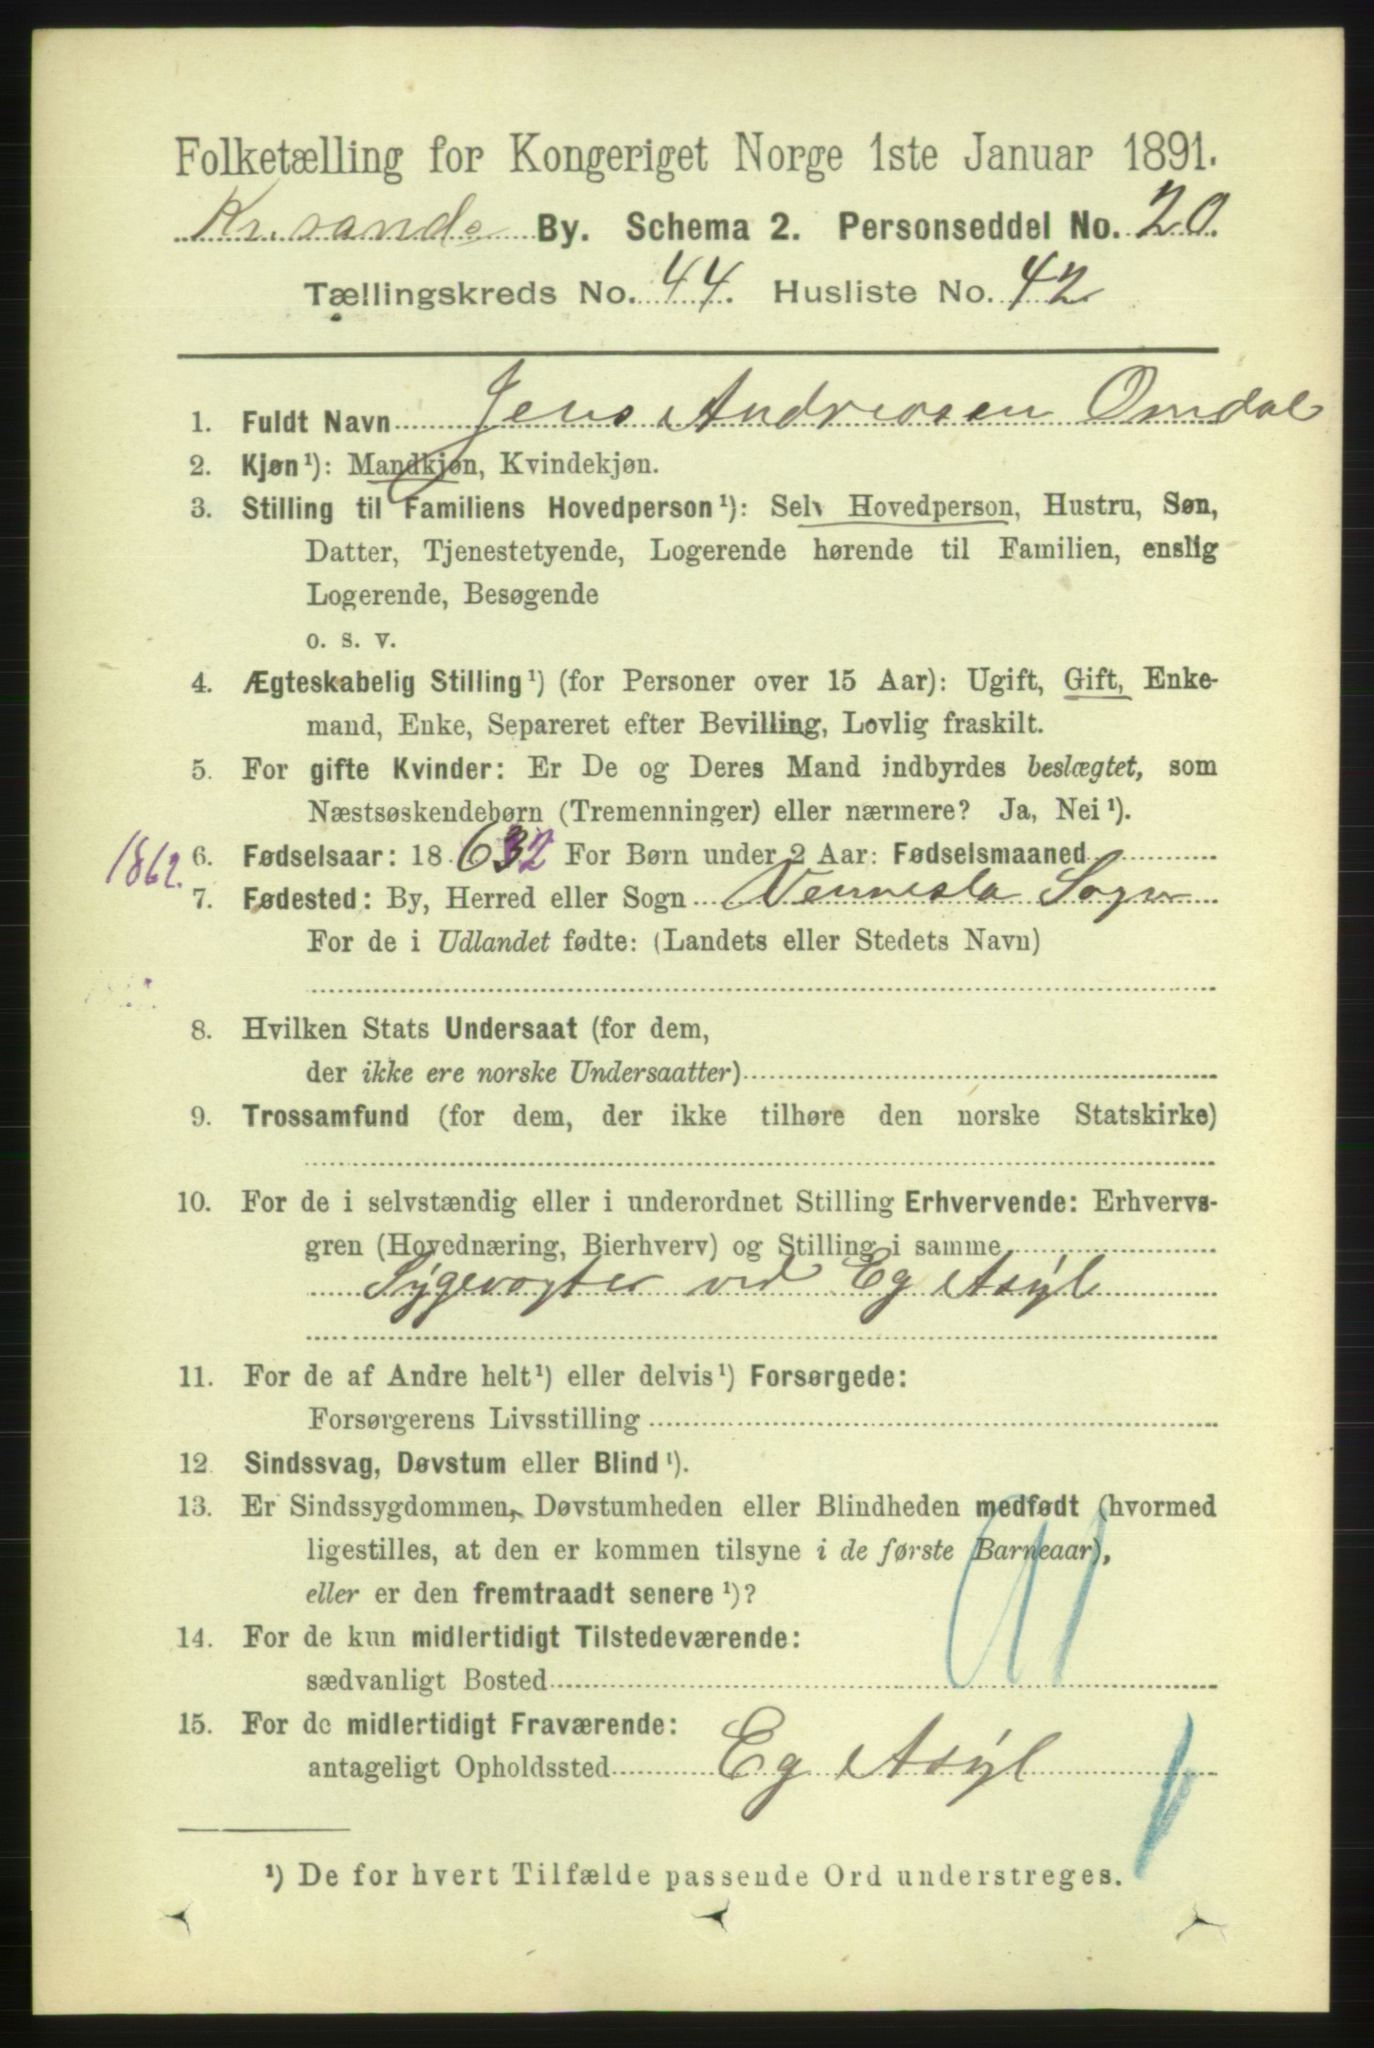 Folketælling for Kongeriget Norge 1ste Januar 1891.
Kr.sands By. Schema 2. Personseddel No. 20.
Tællingskreds No. 44. Husliste No. 42
1. Fuldt Navn Jens Andreasen Omdal
2. Kjøn¹): Mandkjøn, Kvindekjøn.
3. Stilling til Familiens Hovedperson¹): Selv Hovedperson, Hustru, Søn,
Datter, Tjenestetyende, Logerende hørende til Familien, enslig
Logerende, Besøgende
o. s. v.
4. Ægteskabelig Stilling¹) (for Personer over 15 Aar): Ugift, Gift, Enke-
mand, Enke, Separeret efter Bevilling, Lovlig fraskilt.
5. For gifte Kvinder: Er De og Deres Mand indbyrdes beslægtet, som
Næstsøskendebørn (Tremenninger) eller nærmere? Ja, Nei¹).
1862. 6. Fødselsaar: 18 632 For Børn under 2 Aar: Fødselsmaaned
7. Fødested: By, Herred eller Sogn Vennesla Sogn
For de i Udlandet fødte: (Landets eller Stedets Navn)
8. Hvilken Stats Undersaat (for dem,
der ikke ere norske Undersaatter)
9. Trossamfund (for dem, der ikke tilhøre den norske Statskirke)
10. For de i selvstændig eller i underordnet Stilling Erhvervende: Erhvervs-
gren (Hovednæring, Bierhverv) og Stilling i samme
Sygevogter ved Eg Asyl
11. For de af Andre helt¹) eller delvis¹) Forsørgede:
Forsørgerens Livsstilling
12. Sindssvag, Døvstum eller Blind¹).
13. Er Sindssygdommen, Døvstumheden eller Blindheden medfødt (hvormed
ligestilles, at den er kommen tilsyne i de første Barneaar),
eller er den fremtraadt senere¹)?
14. For de kun midlertidigt Tilstedeværende:
sædvanligt Bosted
15. For de midlertidigt Fraværende:
antageligt Opholdssted Eg Asyl
¹) De for hvert Tilfælde passende Ord understreges.